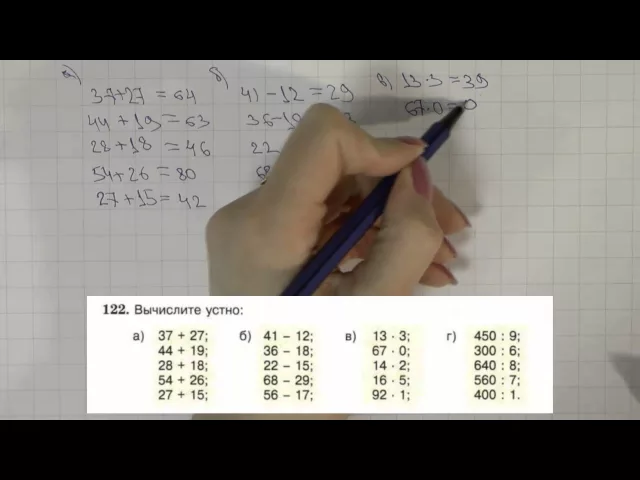 а) б) в)
37+27 = 64 41 - 12 = 29 13 · 3 = 39
44 + 19 = 63 36-18 67 · 0 = 0
28 + 18 = 46 22
54 + 26 = 80
27 + 15 = 42
122. Вычислите устно:
а) 37 + 27; б) 41 − 12; в) 13 · 3; г) 450 : 9;
44 + 19; 36 − 18; 67 · 0; 300 : 6;
28 + 18; 22 − 15; 14 · 2; 640 : 8;
54 + 26; 68 − 29; 16 · 5; 560 : 7;
27 + 15; 56 − 17; 92 · 1; 400 : 1.